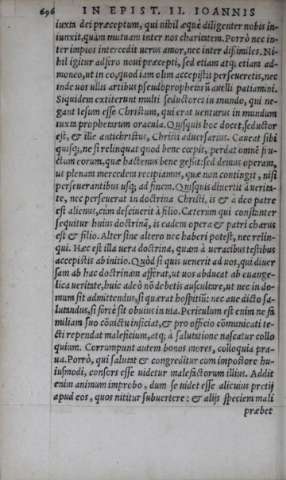 696 IN EPIST. II. IOANNIS
iuxta dei præceptum, qui nihil æquè diligenter nobis in-
iunxit, quàm mutuam inter nos charitatem. Porrò nec in-
ter impios intercedit uerus amor, nec inter dissimiles. Ni-
hil igitur adfero noui præcepti, sed etiam atq; etiam ad-
moneo, ut in eo, quod iam olim accepistis perseueretis, nec
inde uos ullis artibus pseudoprophetarũ auelli patiamini.
Siquidem extiterunt multi seductores in mundo, qui ne-
gant Iesum esse Christum, qui erat uenturus in mundum
iuxta prophetarum oracula. Quisquis hoc docet, seductor
est, & ille antichristus, Christi aduersarius. Caueat sibi
quisq;, ne si relinquat quod bene cœpit, perdat omnẽ fru-
ctum eorum, quæ hactenus bene gessit: sed demus operam,
ut plenam mercedem recipiamus, quæ non contingit, nisi
perseuerantibus usq; ad finem. Quisquis diuertit à uerita-
te, nec perseuerat in doctrina Christi, is & a deo patre
est alienus, cùm desciuerit à filio. Cæterum qui constanter
sequitur huius doctrinã, is eadem opera & patri charus
est & filio. Alter sine altero nec haberi potest, nec relin-
qui. Hæc est illa uera doctrina, quam à ueracibus testibus
accepistis ab initio. Quòd si quis uenerit ad uos, qui diuer
sam ab hac doctrinam afferat, ut uos abducat ab euange-
lica ueritate, huic adeò nõ debetis auscultare, ut nec in do-
mum sit admittendus, si quærat hospitiũ: nec aue dicto sa-
lutandus, si fortè sit obuius in uia. Periculum est enim ne fa
miliam suo cõuictu inficiat, & pro officio cõmunicati te-
cti rependat maleficium, atq; à salutatione nascatur collo
quium. Corrumpunt autem bonos mores, colloquia pra-
ua. Porrò, qui salutat & congreditur cum impostore hu-
iusmodi, consors esse uidetur malefactorum illius. Addit
enim animum improbo, dum se uidet esse alicuius pretij
apud eos, quos nititur subuertere: & alijs speciem mali
præbet